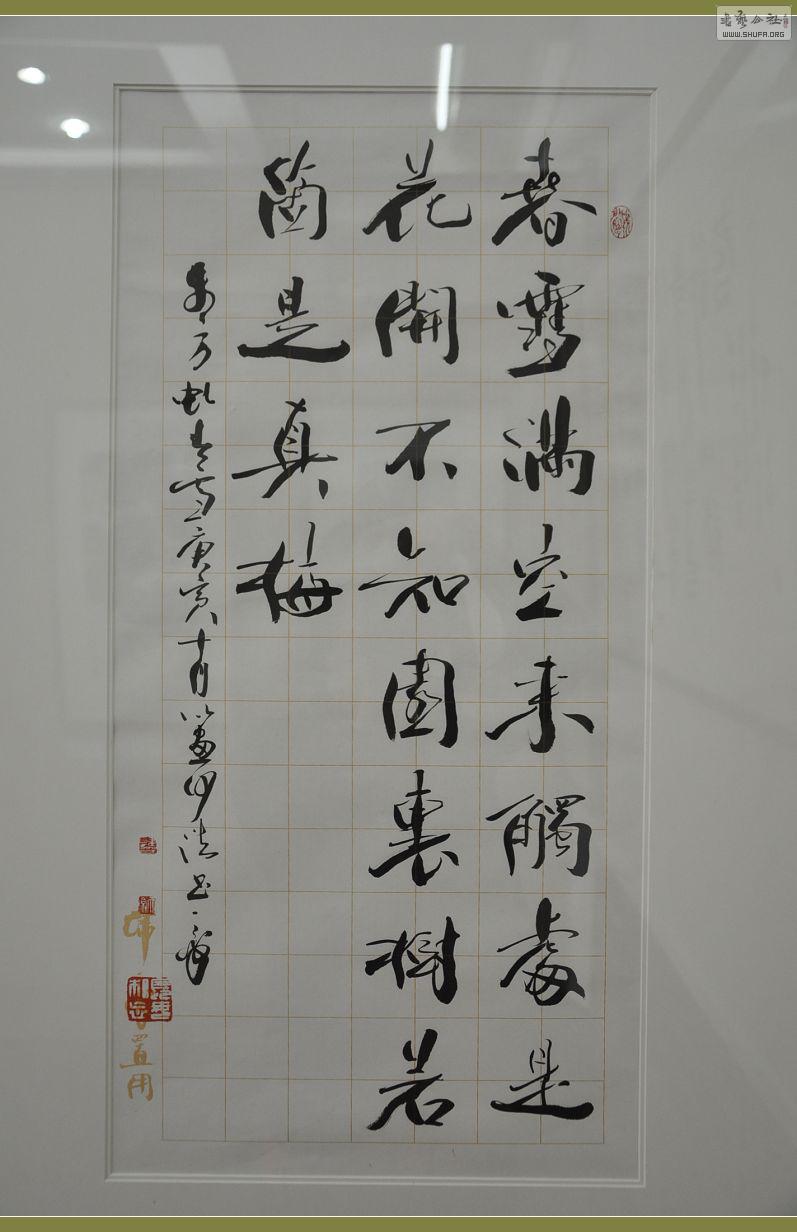 書藝公社
WWW.SHUFA.ORG
春雪滿空来觸處是
花開不知園裏樹若
箇是真梅
東方虬春雪庚寅十月
置用